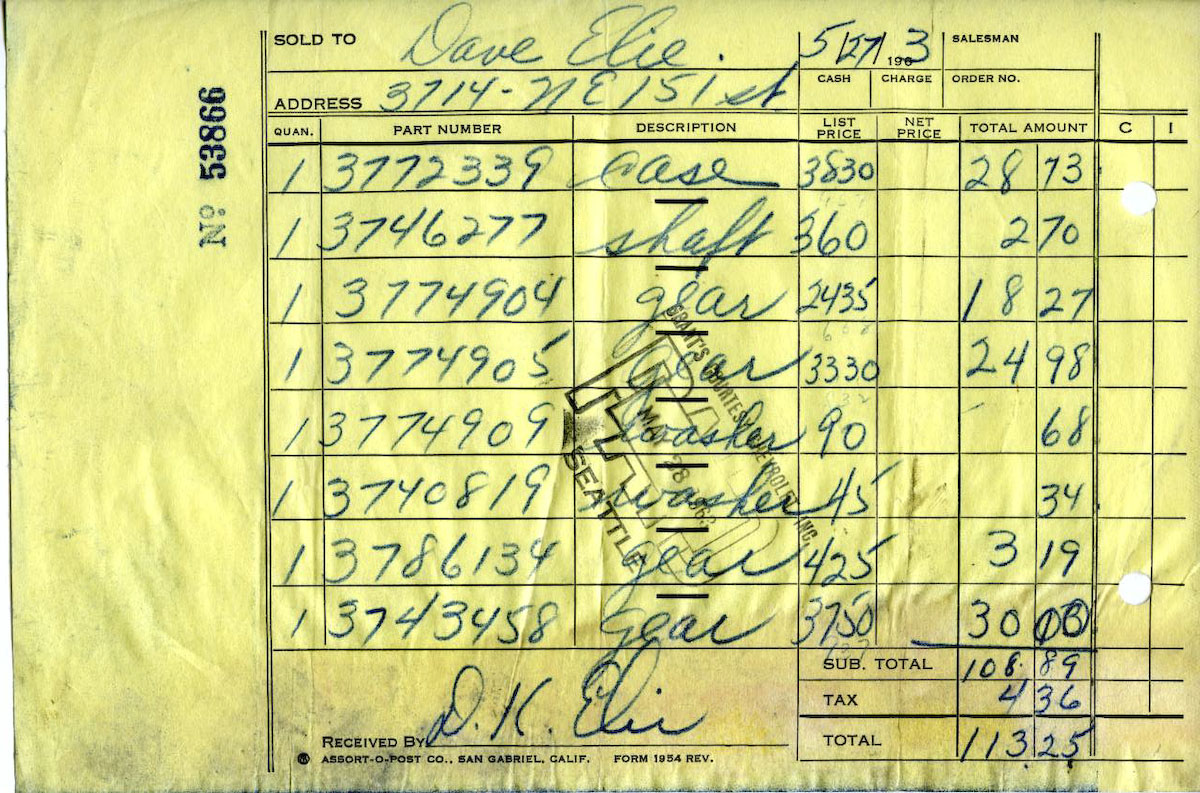 SOLD TO Dave Elie. 5/27/1963 SALESMAN
CASH CHARGE ORDER NO.
ADDRESS 3714-NE 151 st
QUAN. PART NUMBER DESCRIPTION LIST PRICE NET PRICE TOTAL AMOUNT C I
1 3772339 case 3830 28 73
1 3746277 shaft 360 2 70
1 3774904 gear 2435 18 27
1 3774905 gear 3330 24 98
1 3774909 washer 90 68
1 3740819 washer 45 34
1 3786134 gear 425 3 19
1 3743458 gear 3750 30 00
SUB. TOTAL 108. 89
TAX 4 36
TOTAL 113.25
RECEIVED BY D. K. Elie
ASSORT-O-POST CO., SAN GABRIEL, CALIF. FORM 1954 REV.
No 53866
GRANT'S COURTESY CHEVROLET INC.
PAID
MAY 28 1963
SEATTLE